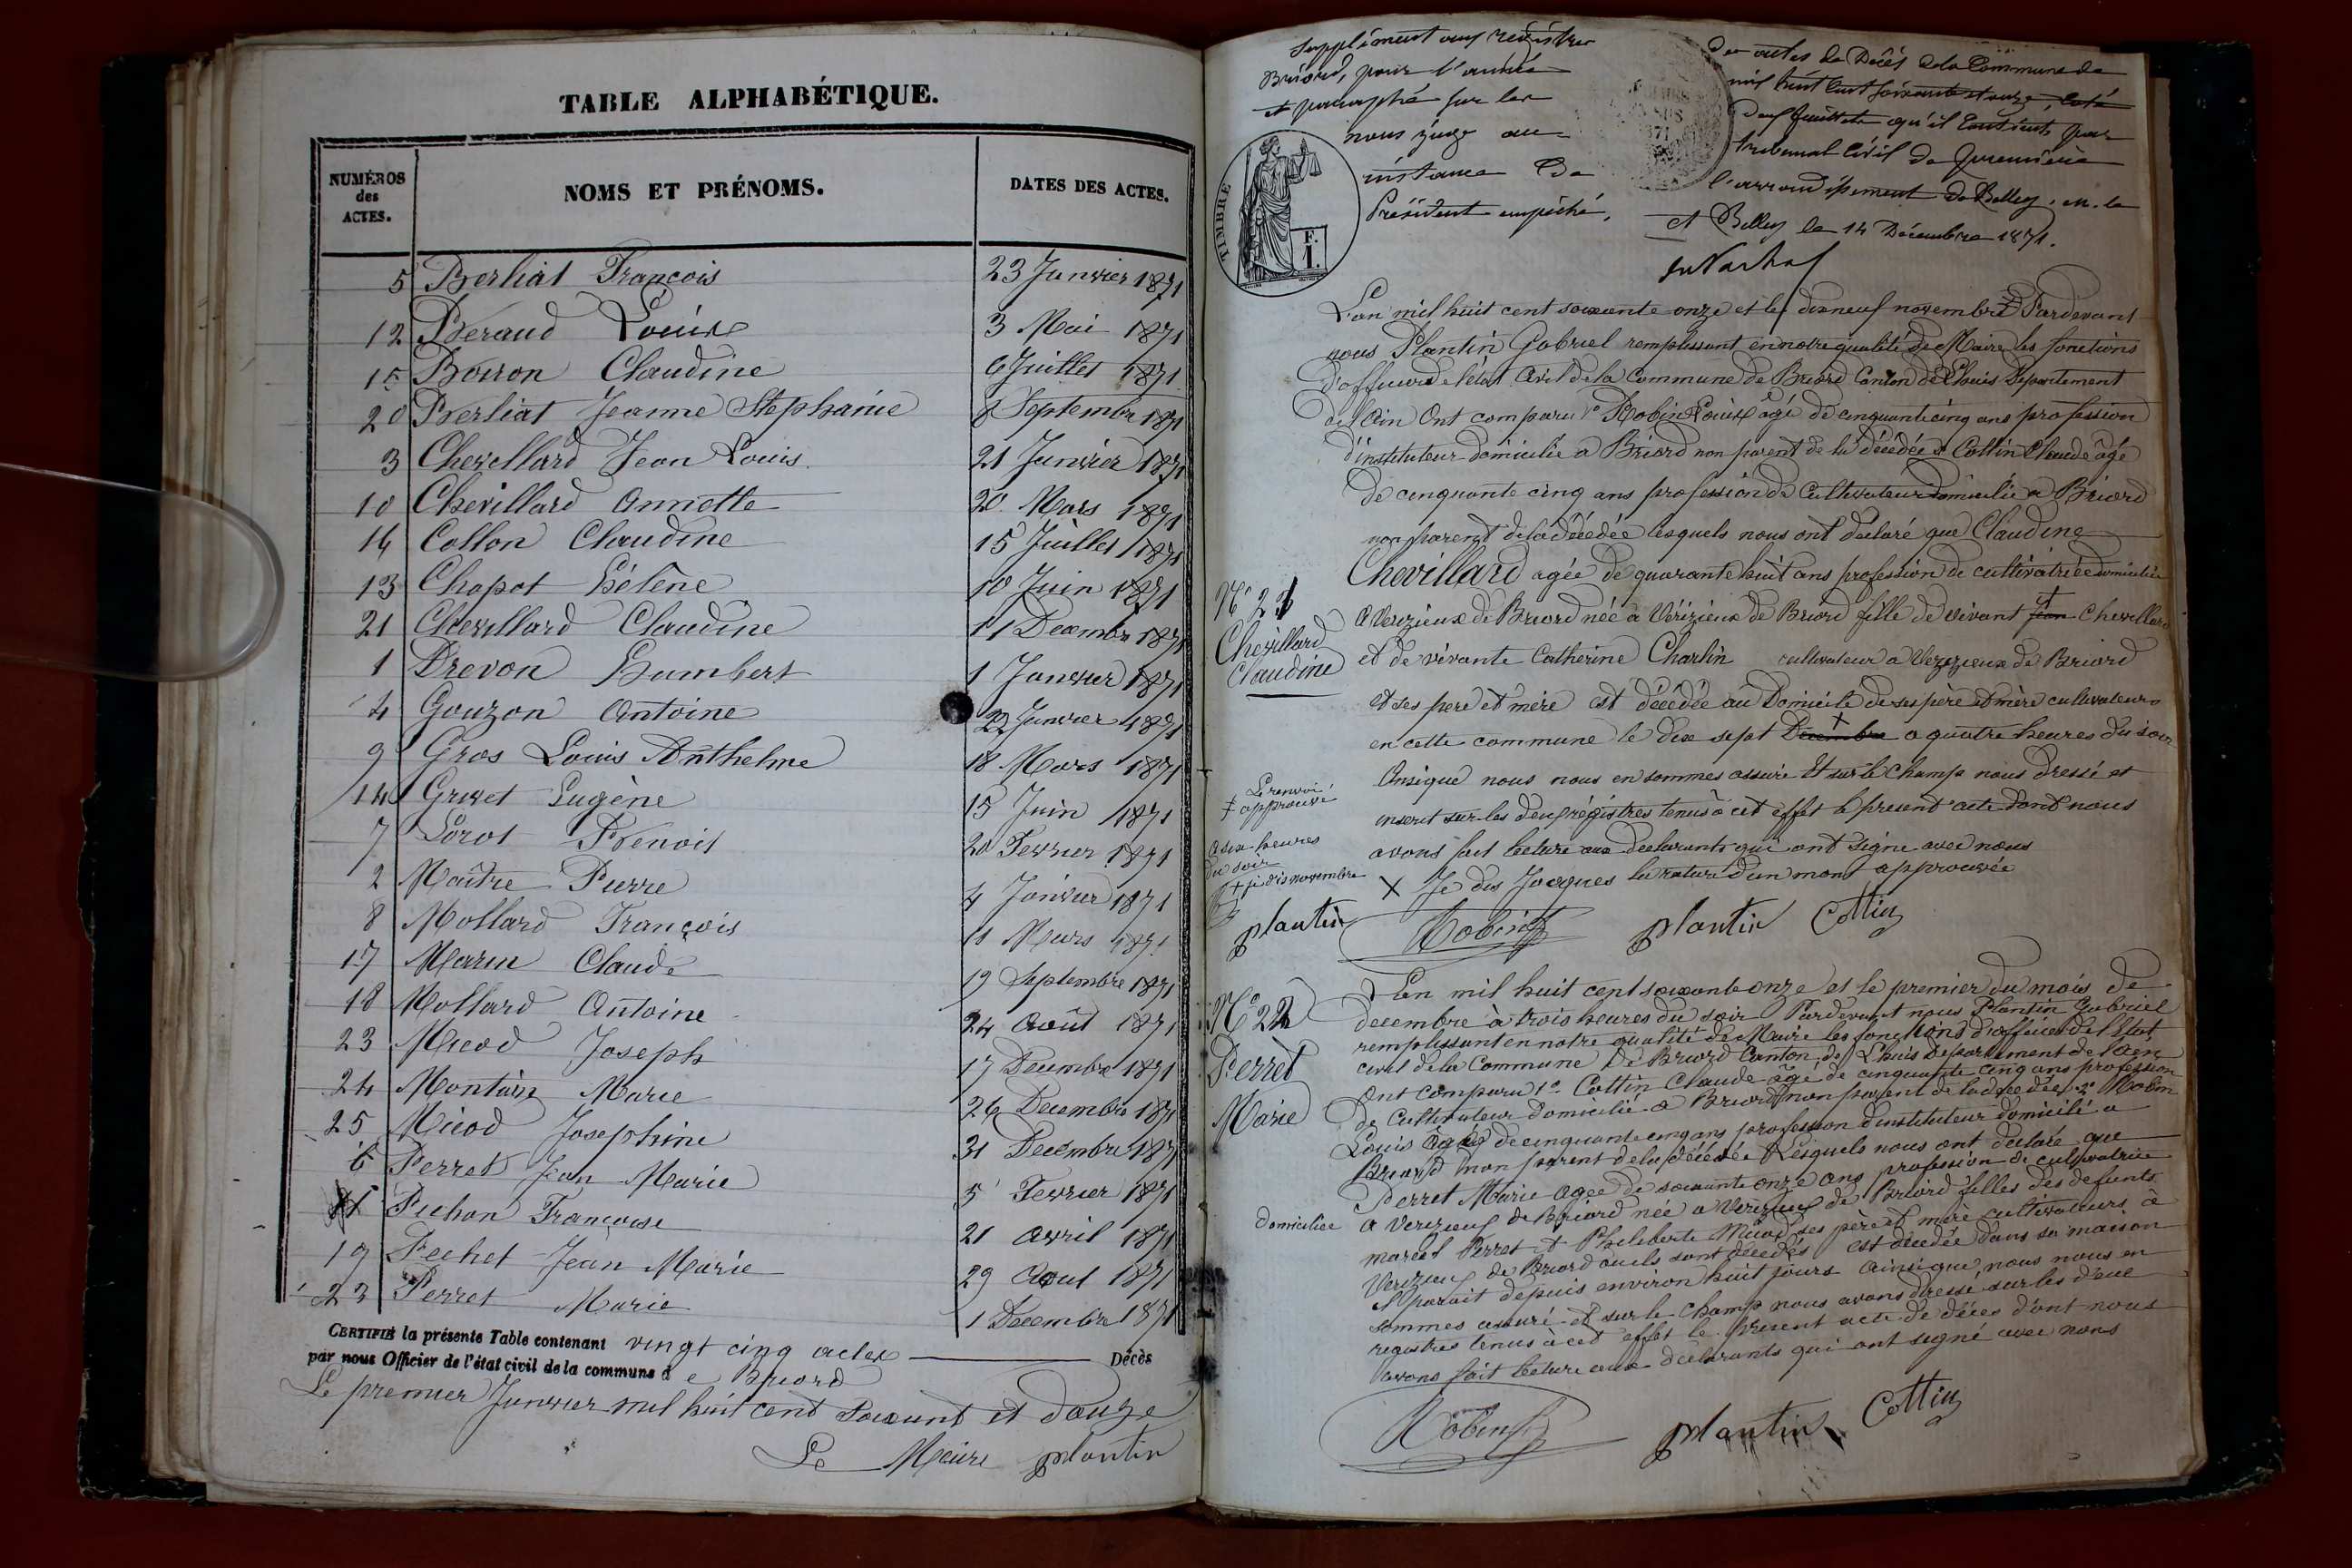 TABLE ALPHABÉTIQUE.
NUMÉROS des ACTES. NOMS ET PRÉNOMS. DATES DES ACTES.
5 Berliat François 23 Janvier 1871
12 Béraud Louise 3 Mai 1871
15 Borron Claudine 6 Juillet 1871
20 Berliat Jeanne Stephanie 8 Septembre 1871
3 Chevillard Jean Louis 21 Janvier 1871
10 Chevillard Annette 20 Mars 1871
16 Collon Claudine 15 Juillet 1871
13 Chapot Hélène 10 Juin 1871
21 Chevillard Claudine 11 Décembre 1871
1 Drevon Humbert 1 Janvier 1871
4 Gouzon Antoine 22 Janvier 1871
9 Gros Louis Anthelme 18 Mars 1871
14 Grivet Eugène 15 Juin 1871
7 Lorot Benoit 20 Fevrier 1871
2 Maître Pierre 4 Janvier 1871
8 Mollard François 11 Mars 1871
17 Marin Claude 19 Septembre 1871
18 Mollard Antoine 24 Août 1871
23 Micod Joseph 17 Decembre 1871
24 Montain Marie 26 Decembre 1871
25 Micod Josephine 31 Decembre 1871
6 Perret Jean Marie 5 Fevrier 1871
11 Pichon Françoise 21 Avril 1871
19 Pechet Jean Marie 29 Aout 1871
23 Perret Marie 1 Decembre 1871
CERTIFIÉ la présente Table contenant vingt cinq actes Décès
par nous Officier de l'état civil de la commune de Briord
Le premier Janvier mil huit cent soixant et douze
Le Maire Plantin
Supplément aux registres des actes de Décès de la Commune de
Briord, pour l'année mil huit cent soixante et onze, coté
et paraphé sur les deux feuillets qu'il contient, par
nous juge au tribunal civil de première
instance de l'arrondissement de Belley, M. le
Président empêché.
A Belley le 14 Décembre 1871.
TIMBRE
F.
1.
L'an mil huit cent soixante onze et le dixneuf novembre ‡ Pardevant
nous Plantin Gabriel remplissant en notre qualité de Maire les fonctions
d'officier de l'état civil de la Commune de Briord Canton de Lhuis Département
de l'Ain Ont comparu 1° Robin Louis âgé de cinquante cinq ans profession
d'instituteur domicilié a Briord non parent de la décédée 2° Cottin Claude âgé
de cinquante cinq ans profession de cultivateur domicilié a Briord
non parent de la décédée lesquels nous ont déclaré que Claudine
Chevillard agée de quarante huit ans profession de cultivatrice domiciliée
N° 21
Chevillard
Claudine
a Verizieux de Briord née a Vérizieux de Briord fille de vivant Jean Chevillard
et de vivante Catherine Charlin cultivateur a Verizieux de Briord
et ses pere et mère est décédée au Domicile de ses père et mère cultivateurs
en cette commune le dix sept Decembre a quatre heures du soir
Ainsi que nous nous en sommes assuré Et sur le champ nous dressé et
inscrit sur les deux régistres tenus à cet effet le présent acte dont nous
avons fait lecture aux declarants qui ont signé avec nous
X Je dis Jacques la rature d'un mont approuvée
Le renvoi
‡ approuvé
a six heures
du soir
+ je dis novembre
plantin Robin plantin Cottin
N° 22
Perrèt
Marie
L'an mil huit cent soixante onze et le premier du mois de
decembre à trois heures du soir Pardevant nous Plantin Gabriel
remplissant en notre qualité de Maire les fonctions d'officier de l'Etat
civil de la Commune de Briord Canton de Lhuis Departement de l'ain
Ont comparu 1° Cottin Claude âgé de cinquante cinq ans profession
de cultivateur domicilié a Briord non parent de la décédée 2° Robin
Louis âgé de cinquante cinq ans profession d'instituteur domicilié a
Briord non parent de la décédée Lesquels nous ont déclaré que
Perret Marie agee de soixante onze ans profession de cultivatrice
domiciliée a Verizieux de Briord née a Verizieux de Briord filles des defunts
marcel Perret et Pheleberte Micod ses père et mère cultivateurs à
Verizieux de Briord ou ils sont décédés est décédée dans sa maison
il parait depuis environ huit jours Ainsi que nous nous en
sommes assuré et sur le champ nous avons dressé sur les deux
registres tenus à cet effet le present acte de décès dont nous
avons fait lecture aux declarants qui ont signé avec nous
Robin plantin Cottin